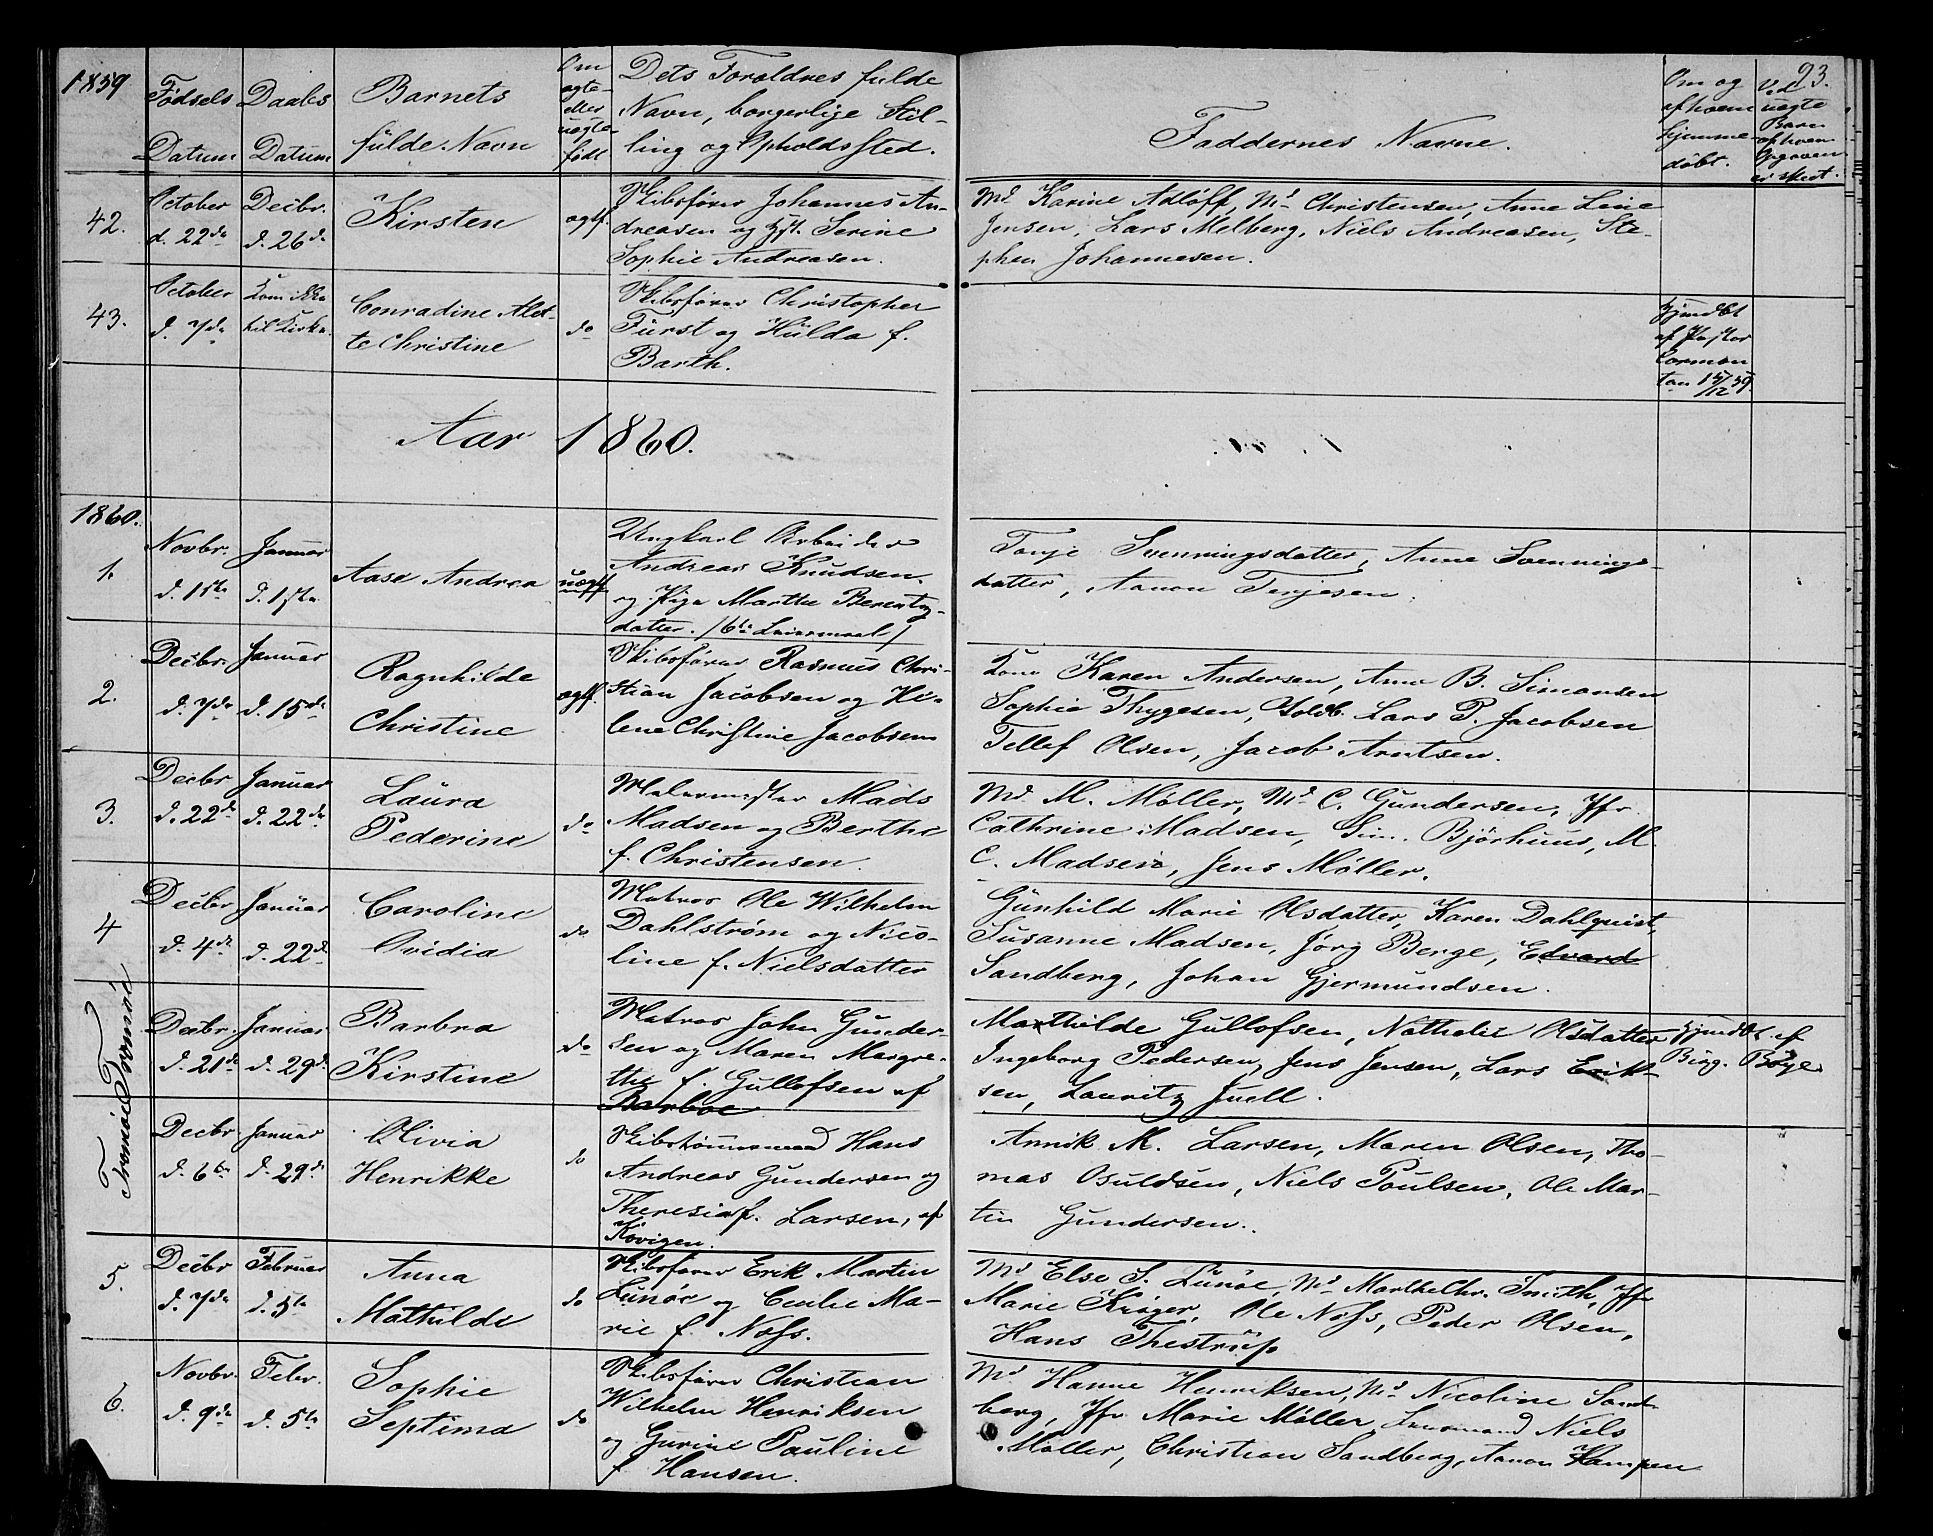 1859
Fødsels Datum
Daabs Datum
Barnets fulde Navn
Om ægte eller uægte født
Dets Forældres fulde
Navn, borgerlige Stil-
ling og Opholdssted.
Faddernes Navne.
Om og af hvem hjemme døbt.
93.
Ved uægte Barn
42.
October d. 22de
Decbr. d. 26de
Kirsten
ægtf.
Skibsfører Johannes An-
dreasen og Serine
Sophie Andreasen.
Md Karine Adloff, Md Christensen, Anne Line
Jensen, Lars Melberg, Niels Andreasen, Ste-
phen Johannesen.
43.
October d. 7de
Kom ikke til Kirke.
Conradine Alet-
te Christine
do
Skibsfører Christopher
Fürst og Hulda f.
Barth.
hjemdbt
af Pastor
Cormon
tan 15/12 59.
Aar 1860.
1860.
1.
Novbr. d. 15de
Januar d. 15de
Aase Andrea
uægtf.
Ungkarl Arbeider
Andreas Knudsen
og Pige Marthe Berents-
datter. /6te Leiermaal/
Tonje Svenningsdatter, Anne Svennings-
datter, Aanon Terjesen.
2.
Decbr. d. 7de
Januar d. 15de
Ragnhilde
Christine
ægtf.
Skibsfører Rasmus Chri-
stian Jacobsen og He-
lene Christine Jacobsen
Kone Karen Andersen, Anne B. Simonsen
Sophie Thygesen, Toldb. Lars P. Jacobsen
Tellef Olsen, Jacob Arntsen.
3.
Decbr d. 22de
Januar d. 22de
Laura
Pederine
do
Malermester Mads
Madsen og Berthe
f. Christensen.
Md. M. Møller, Md C. Gundersen, Jfr.
Cathrine Madsen, Sim. Bjørhuus, M.
C. Madsen, Jens Møller.
4
Decbr d. 4de
Januar d. 22de
Caroline
Ovidia
do
Matros Ole Wilhelm
Dahlstrøm og Nico-
line f. Nielsdatter
Gunhild Marie Olsdatter, Karen Dahlquist,
Susanne Madsen, Jørg Berge, Edvard
Sandberg, Johan Gjermundsen.
Tromøe Tromøe
Decbr. d. 21de
Januar d. 29de
Barbra
Kirstine
do
Matros John Gunder-
sen og Maren Margre-
the f. Gullofsen af
Barboe
Mathilde Gullofsen, Nathalie Olsdatter
Ingeborg Pedersen, Jens Jensen, Lars Erik-
sen, Lauritz Juell.
hjemdbt af
Birg. Bøye
Decbr d. 6te
Januar d. 29de
Olivia
Henrikke
do
Skibstømmermand Hans
Andreas Gundersen og
Theresia f. Larsen, af
Kovigen.
Annik M. Larsen, Maren Olsen, Tho-
mas Osuldsen, Niels Poulsen, Ole Mar-
tin Gundersen.
5.
Decbr d. 7de
Februar d. 5te
Anna
Mathilde
do
Skibsfører Erik Martin
Lunøe og Cecilie Ma-
rie f. Næss.
Md Else S. Lunøe, Md Marthe Chr. Smith, Jfr
Marie Krøger, Ole Næss, Peder Olsen,
Hans Thestrup
6.
Novbr. d. 9de
Febr. d. 5te
Sophie
Septima
do
Skibsfører Christian
Wilhelm Henriksen
og Gurine Pauline
f. Hansen.
Md Hanne Henriksen, Md Nicoline Sand-
berg, Jfr Marie Møller, Niels
Møller, Christian Sandberg, Aanon Kampen